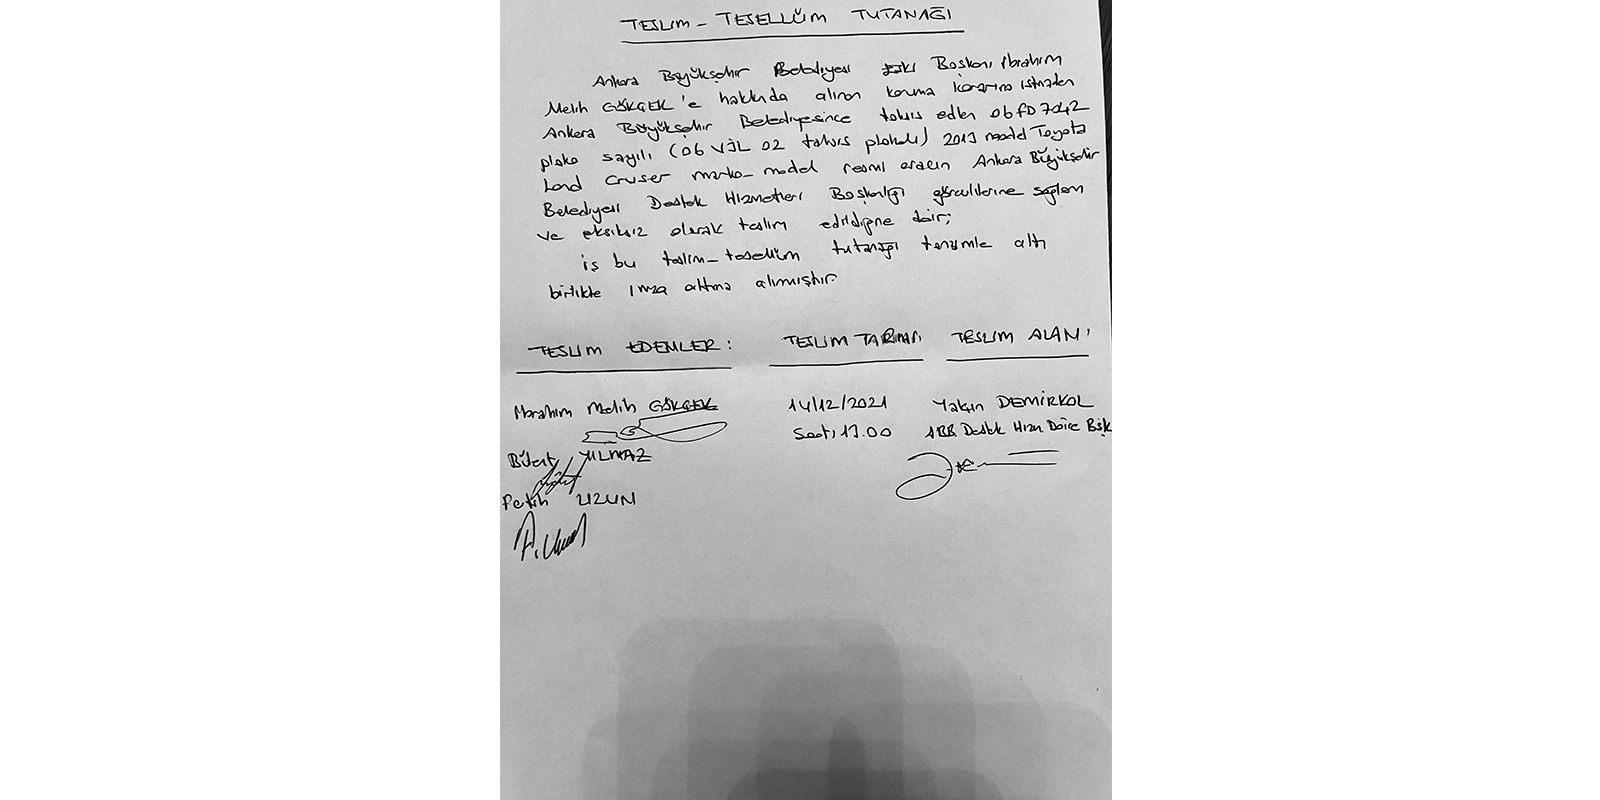 TESLIM - TESELLÜM TUTANAĞI
Ankara Büyükşehir Belediyesi Eski Başkanı İbrahim
Melih GÖKÇEK'e hakkında alınan koruma kararına istinaden
Ankara Büyükşehir Belediyesince tahsis edilen 06 FD 7042
plaka sayılı (06 VJL 02 tahsis plakalı) 2013 model Toyota
Land Cruser marka-model resmi aracın Ankara Büyükşehir
Belediyesi Destek Hizmetleri Başkanlığı görevlilerine sağlam
ve eksiksiz olarak teslim edildiğine dair;
iş bu teslim-tesellüm tutanağı tanzimle altı
birlikte imza altına alınmıştır.
TESLIM EDENLER: TESLIM TARİHİ: TESLIM ALAN:
İbrahim Melih GÖKÇEK 14/12/2021 Yalçın DEMİRKOL
Saat: 17.00 ABB Destek Hizm Daire Bşk
Bülent YILMAZ
Fatih UZUN